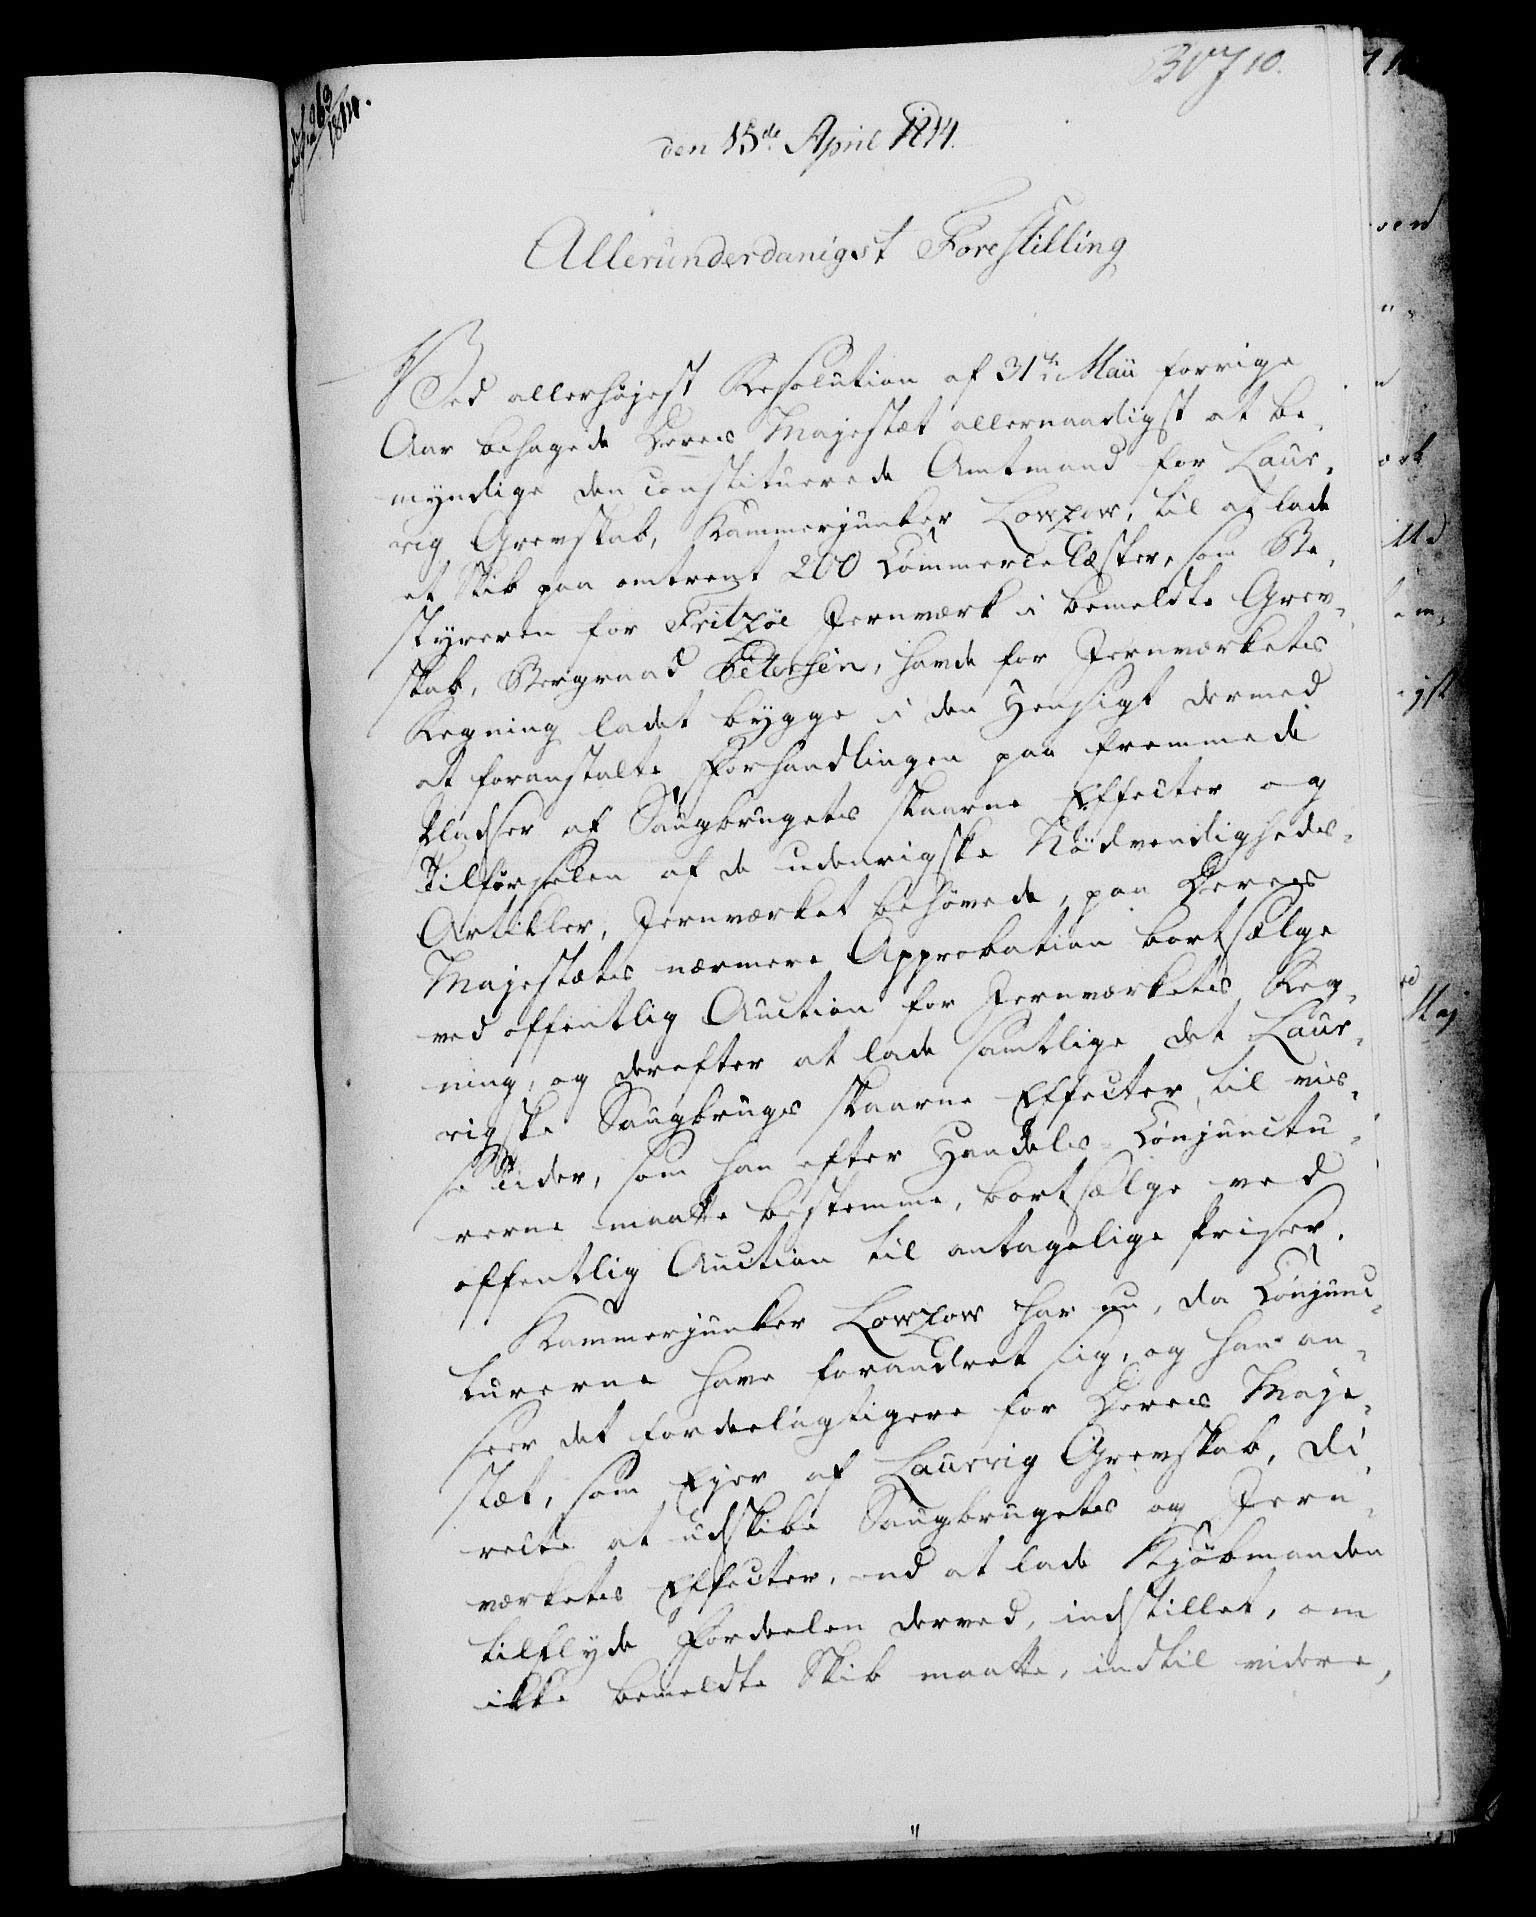 den 15de April 1814.
Alleründerdanigst Forestilling
Ved allerhøjest Resolution af 31te Maii forrige
Aar behagede Deres Majestæt allernaadigst at be-
myndige den constituerede Amtmand for Laur-
vig Grevskab, Kammerjunker Lowzow, til at lade
et Skib paa omtrent 200 Commerce Læster, som Be-
styreren for Fritzöe Jernværk i bemeldte Grev-
skab, Bergraad Petersen, havde for Jernværkets
Regning ladet bygge i den Hensigt dermed
at foranstalte Forhandlingen paa fremmede
Pladser af Saugbrugets skaarne Effecter og
Tilførselen af de udenrigske Nödvendigheds-
Artikler, Jernværket behøvede, paa Deres
Majestæts nærmere Approbation bortsælge
ved offentlig Auction for Jernværkets Reg-
ning, og derefter at lade samtlige det Laur-
vigske Saugbrugs skaarne Effecter til vis-
se Tider, som han efter Handels-Conjunctu-
rerne maatte bestemme, bortsælge ved
offentlig Auction til antagelige Priser.
Kammerjunker Lowzow har nu, da Conjunc-
turerne have forandret sig, og han an-
seer det fordeelagtigere for Deres Maje-
stæt, som Ejer af Laurvig Grevskab, di-
recte at udskibe Saugbrugets og Jern-
værkets Effecter, end at lade Kjøbmanden
tilflyde Fordeelen derved, indstillet, om
ikke bemeldte Skib maatte, indtil videre,